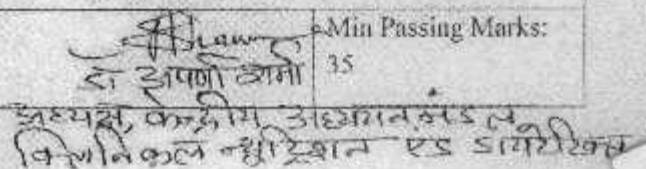 Min Passing Marks:
35
डॉ अपर्णा शर्मा
अध्यक्ष, केन्द्रीय अध्ययन मंडल
क्लिनिकल न्यूट्रिशन एंड डायटेटिक्स